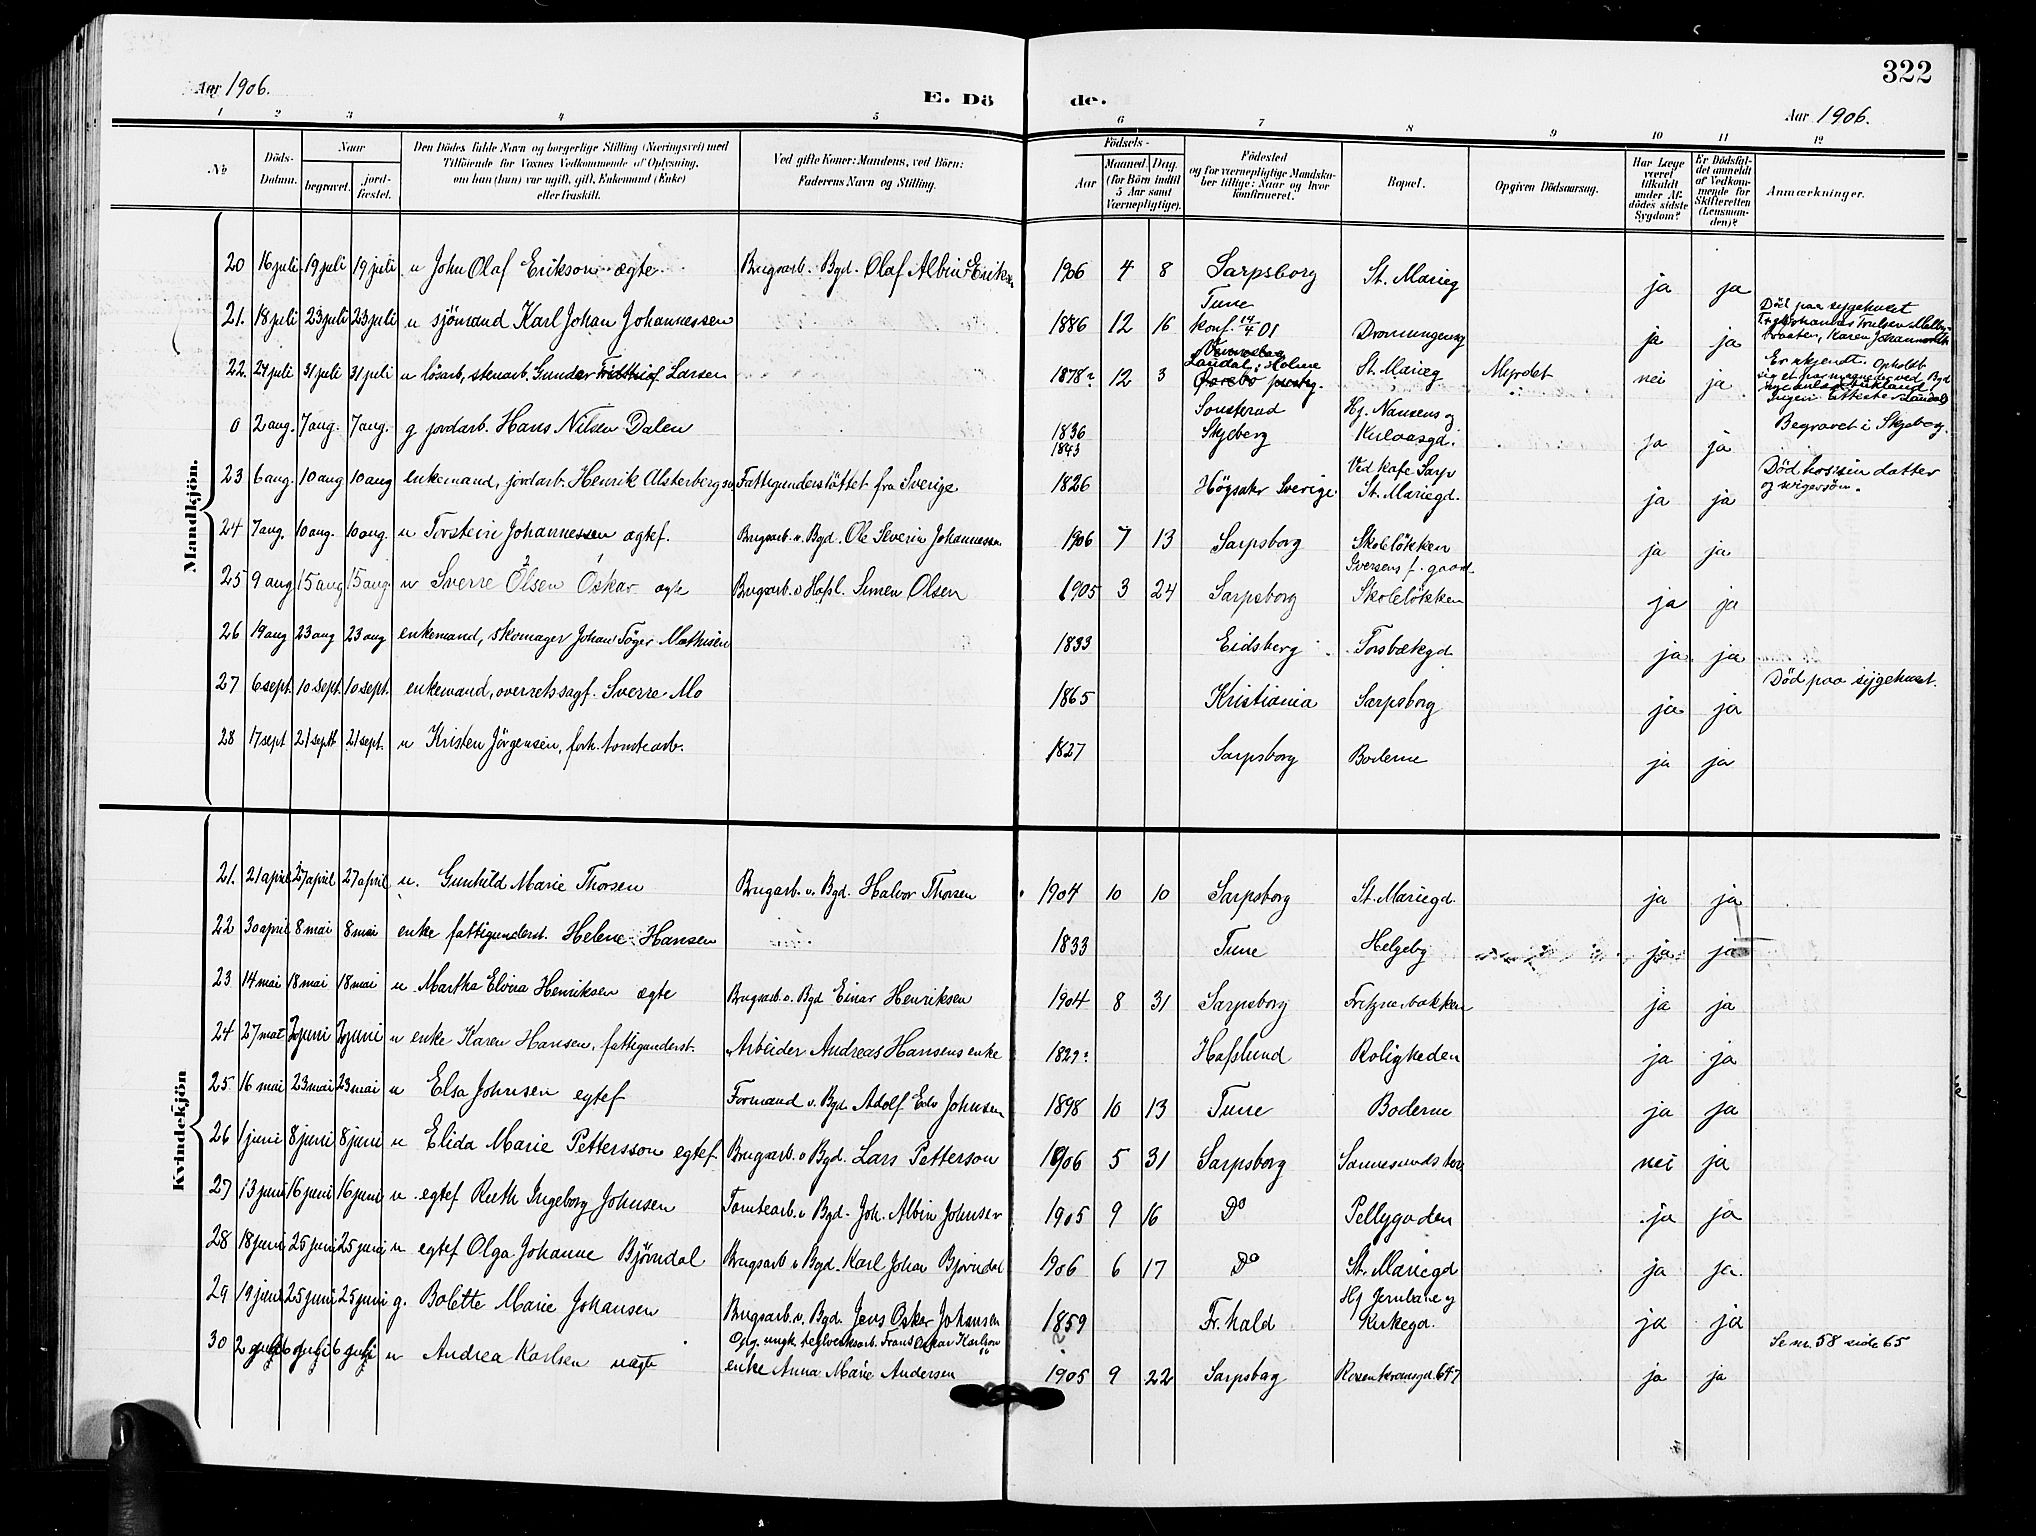 322
Aar 1906.
E. Dö de.
Aar 1906.
1 2 3 4 5 6 7 8 9 10 11 12
No
Döds-Datum.
Naar
begravet.
jord-fæstet.
Den Dödes fulde Navn og borgerlige Stilling (Næringsvei) med
Tilföiende for Voxnes Vedkommende af Oplysning,
om han (hun) var ugift, gift, Enkemand (Enke)
eller fraskilt.
Ved gifte Koner: Mandens, ved Börn:
Faderens Navn og Stilling.
Födsels-
Aar
Maaned Dag.
(for Börn indtil
5 Aar samt
Værnepligtige).
Födested
og for værnepligtige Mandska-
ber tillige: Naar og hvor
konfirmeret.
Bopæl.
Opgiven Dödsaarsag.
Har Læge
været
tilkaldt
under Af-
dödes sidste
Sygdom?
Er Dödsfal-
det anmeldt
af Vedkom-
mende for
Skifteretten
(Lensman-
den)?
Anmærkninger.
Mandkjön.
20 16 juli 19 juli 19 juli u John Olaf Erikson ægte Brugsarb. Bgd. Olaf Albin Eriksen 1906 4 8 Sarpsborg St. Marieg ja ja
21. 18 juli 23 juli 23 juli u sjömand Karl Johan Johannessen 1886 12 16 Tune konf. 14/4 01 Dronningensg ja ja Död paa sygehuset
22. 24 juli 31 juli 31 juli u lösarb, stenarb. Gunder Larsen 1878? 12 3 Laudal i Holme St. Marieg Myrdet nei ja Er ukjendt. Opholdt
0 2 aug. 7 aug. 7 aug. g jordarb. Hans Nilsen Dalen 1836 1843 Skjeberg Hj. Nansens og Kulaasgd. ja ja Begravet i Skjeberg.
23 6 aug. 10 aug 10 aug enkemand, jordarb. Henrik Alsterberg Fattigunderstöttet fra Sverige 1826 Högsäter Sverige Ved kafe Sarp St. Mariegd. ja ja Död hos sin datter
og svigersön.
24 7 aug. 10 aug. 10 aug. u Torstein Johannessen ægtef. Brugsarb. v. Bgd. Ole Severin Johannessen 1906 7 13 Sarpsborg Skolelökken ja ja
25 9 aug 15 aug 15 aug u Sverre Olsen Oskar ægte Brugsarb. v Hafsl. Simen Olsen 1905 3 24 Sarpsborg Iversens f. gaard Skolelökken ja ja
26 19 aug 23 aug 23 aug enkemand, skomager Johan Töger Mathisen 1833 Eidsberg Torsbækgd ja ja
27 6 sept. 10 sept. 10 sept. enkemand, overretssagf. Sverre Mo 1865 Kristiania Sarpsborg ja ja Död paa sygehuset.
28 17 sept 21 sept 21 sept. u Kristen Jörgensen, forh. tomtearb. 1827 Sarpsborg Boderne ja ja
Kvindekjön
21. 21 april 27 april 27 april u. Gunhild Marie Thorsen Brugarb. v. Bgd. Halvor Thorsen 1904 10 10 Sarpsborg St. Mariegd. ja ja
22 30 april 8 mai 8 mai enke fattigunderst. Helene Hansen 1833 Tune Helgeby ja ja
23 14 mai 18 mai 18 mai u Martha Elvina Henriksen ægte Brugsarb. v. Bgd Einar Henriksen 1904 8 31 Sarpsborg Fritznerbakken ja ja
24 27 mai 2 juni 2 juni u enke Karen Hansen, fattigunderst. Arbeider Andreas Hansens enke 1829? Hafslund Roligheden ja ja
25 16 mai 23 mai 23 mai u Elsa Johnsen egtef Formand v. Bgd. Adolf Edv Johnsen 1898 10 13 Tune Boderne ja ja
26 1 juni 8 juni 8 juni u Elida Marie Pettersson egtef Brugsarb. v Bgd. Lars Petterson 1906 5 31 Sarpsborg Sannesunds ja nei ja
27 13 juni 16 juni 16 juni u egtef Ruth Ingeborg Johnsen Tomtearb. v Bgd. Joh. Albin Johnsen 1905 9 16 Do Pellygaden ja ja
28 18 juni 25 juni 25 juni u egtef Olga Johanne Björndal Brugsarb v Bgd. Karl Johan Björndal 1906 6 17 Do St. Mariegd ja ja
29 19 juni 25 juni 25 juni g. Bolette Marie Johansen Brugsarb. v. Bgd. Jens Oskar Johansen 1859 Fr.hald Hj Jernbane og Kirkegd. ja ja
30 2 juli 6 juli 6 juli u Andrea Karlsen uægte Opg. ungk. teglverksarb. Frans Oskar Karlson
enke Anna Marie Andersen 1905 9 22 Sarpsborg Rosenkransgd. 647 ja ja Se nr. 58 side 65